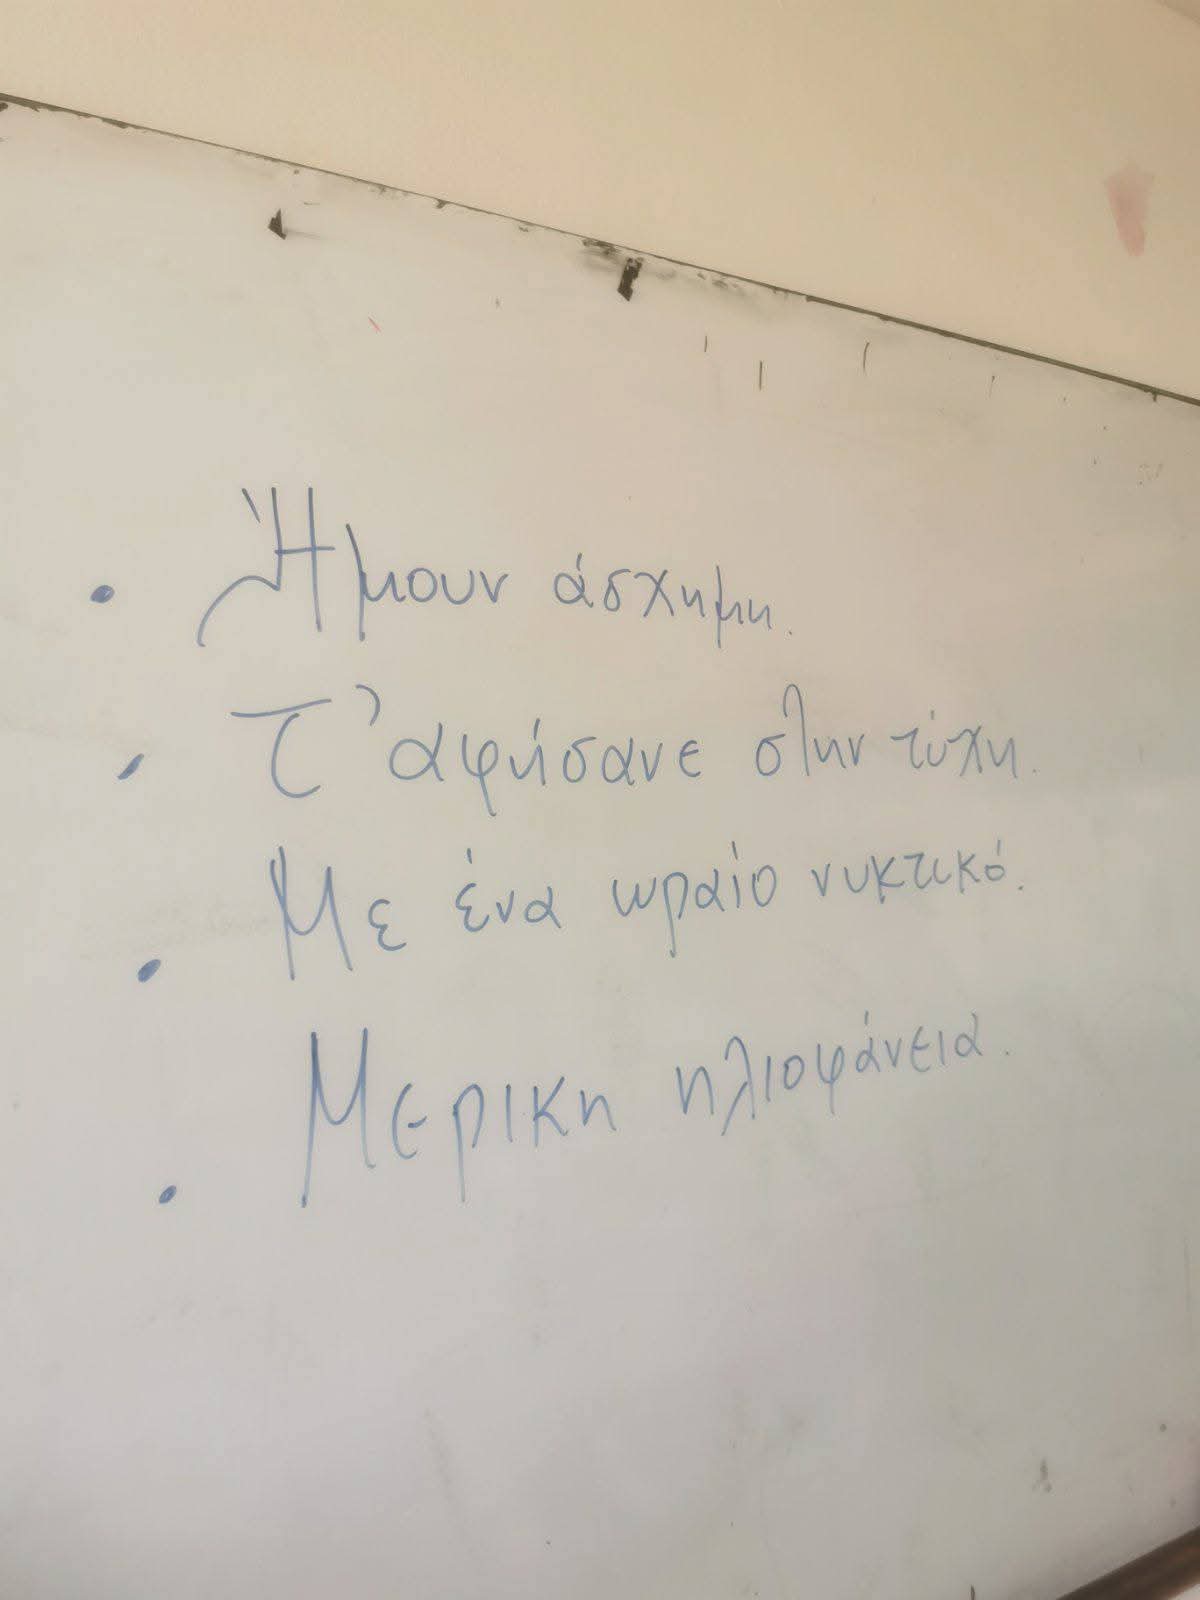 • Ήμουν άσχημη.
• Τ' αφήσανε στην τύχη.
• Με ένα ωραίο νυκτικό.
• Μερικη ηλιοφάνεια.